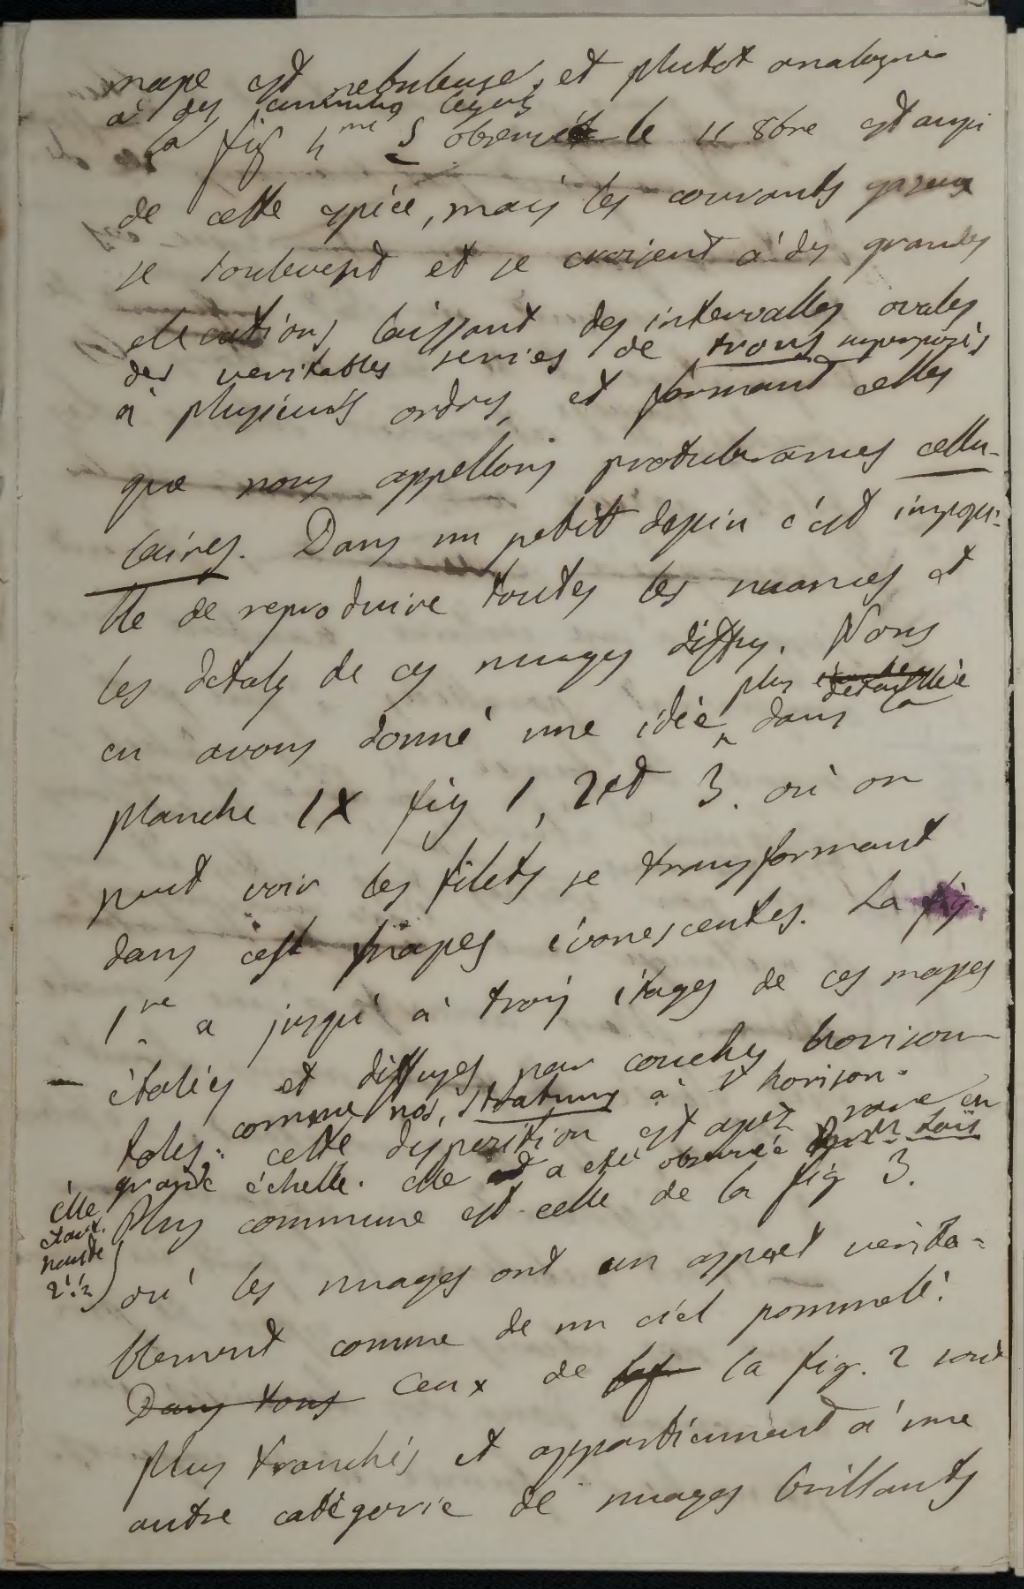 masse est nebuleuse, et plutot analogue
à des cummulus legers
la fig 4me S observée le 11 8bre est aussi
de cette espèce, mais les courants gazeux
se soulevent et se croisent à des grandes
elevations laissant des intervalles ovales
des veritables series de trous superposés
à plusieurs ordres, et formant celles
que nous appellons protuberances cellu-
laires. Dans un petit dessin c'est impossi-
ble de reproduire toutes les nuances et
les details de ces nuages diffus. Nous
en avons donné une idée plus detaillée dans la
planche IX fig 1, 2 et 3. où on
peut voir les filets se transformant
dans ces masses évanescentes. La fig.
1re a jusqu'à à trois étages de ces masses
étalées et diffuses par couches horison-
tales: comme nos stratums à l'horison.
cette disposition est assez rare en
grande échelle. elle a eté observée
elle
avait
2'½
Plus commune est celle de la fig 3.
où les nuages ont un aspect verita-
blement comme de un ciel pommelé.
Dans tous Ceux de la fig. 2 sont
plus tranchés et appartiennent à une
autre catégorie de nuages brillants